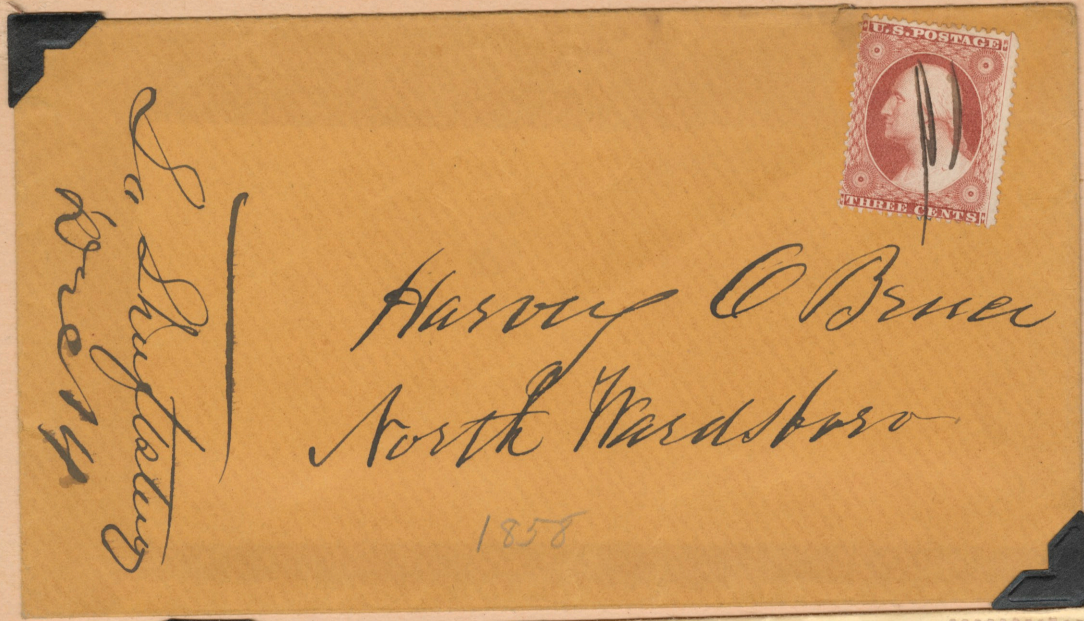 U.S. POSTAGE
THREE CENTS
So Shaftsbury
Dec 14
Harvey O Bruce
North Wardsboro
1858